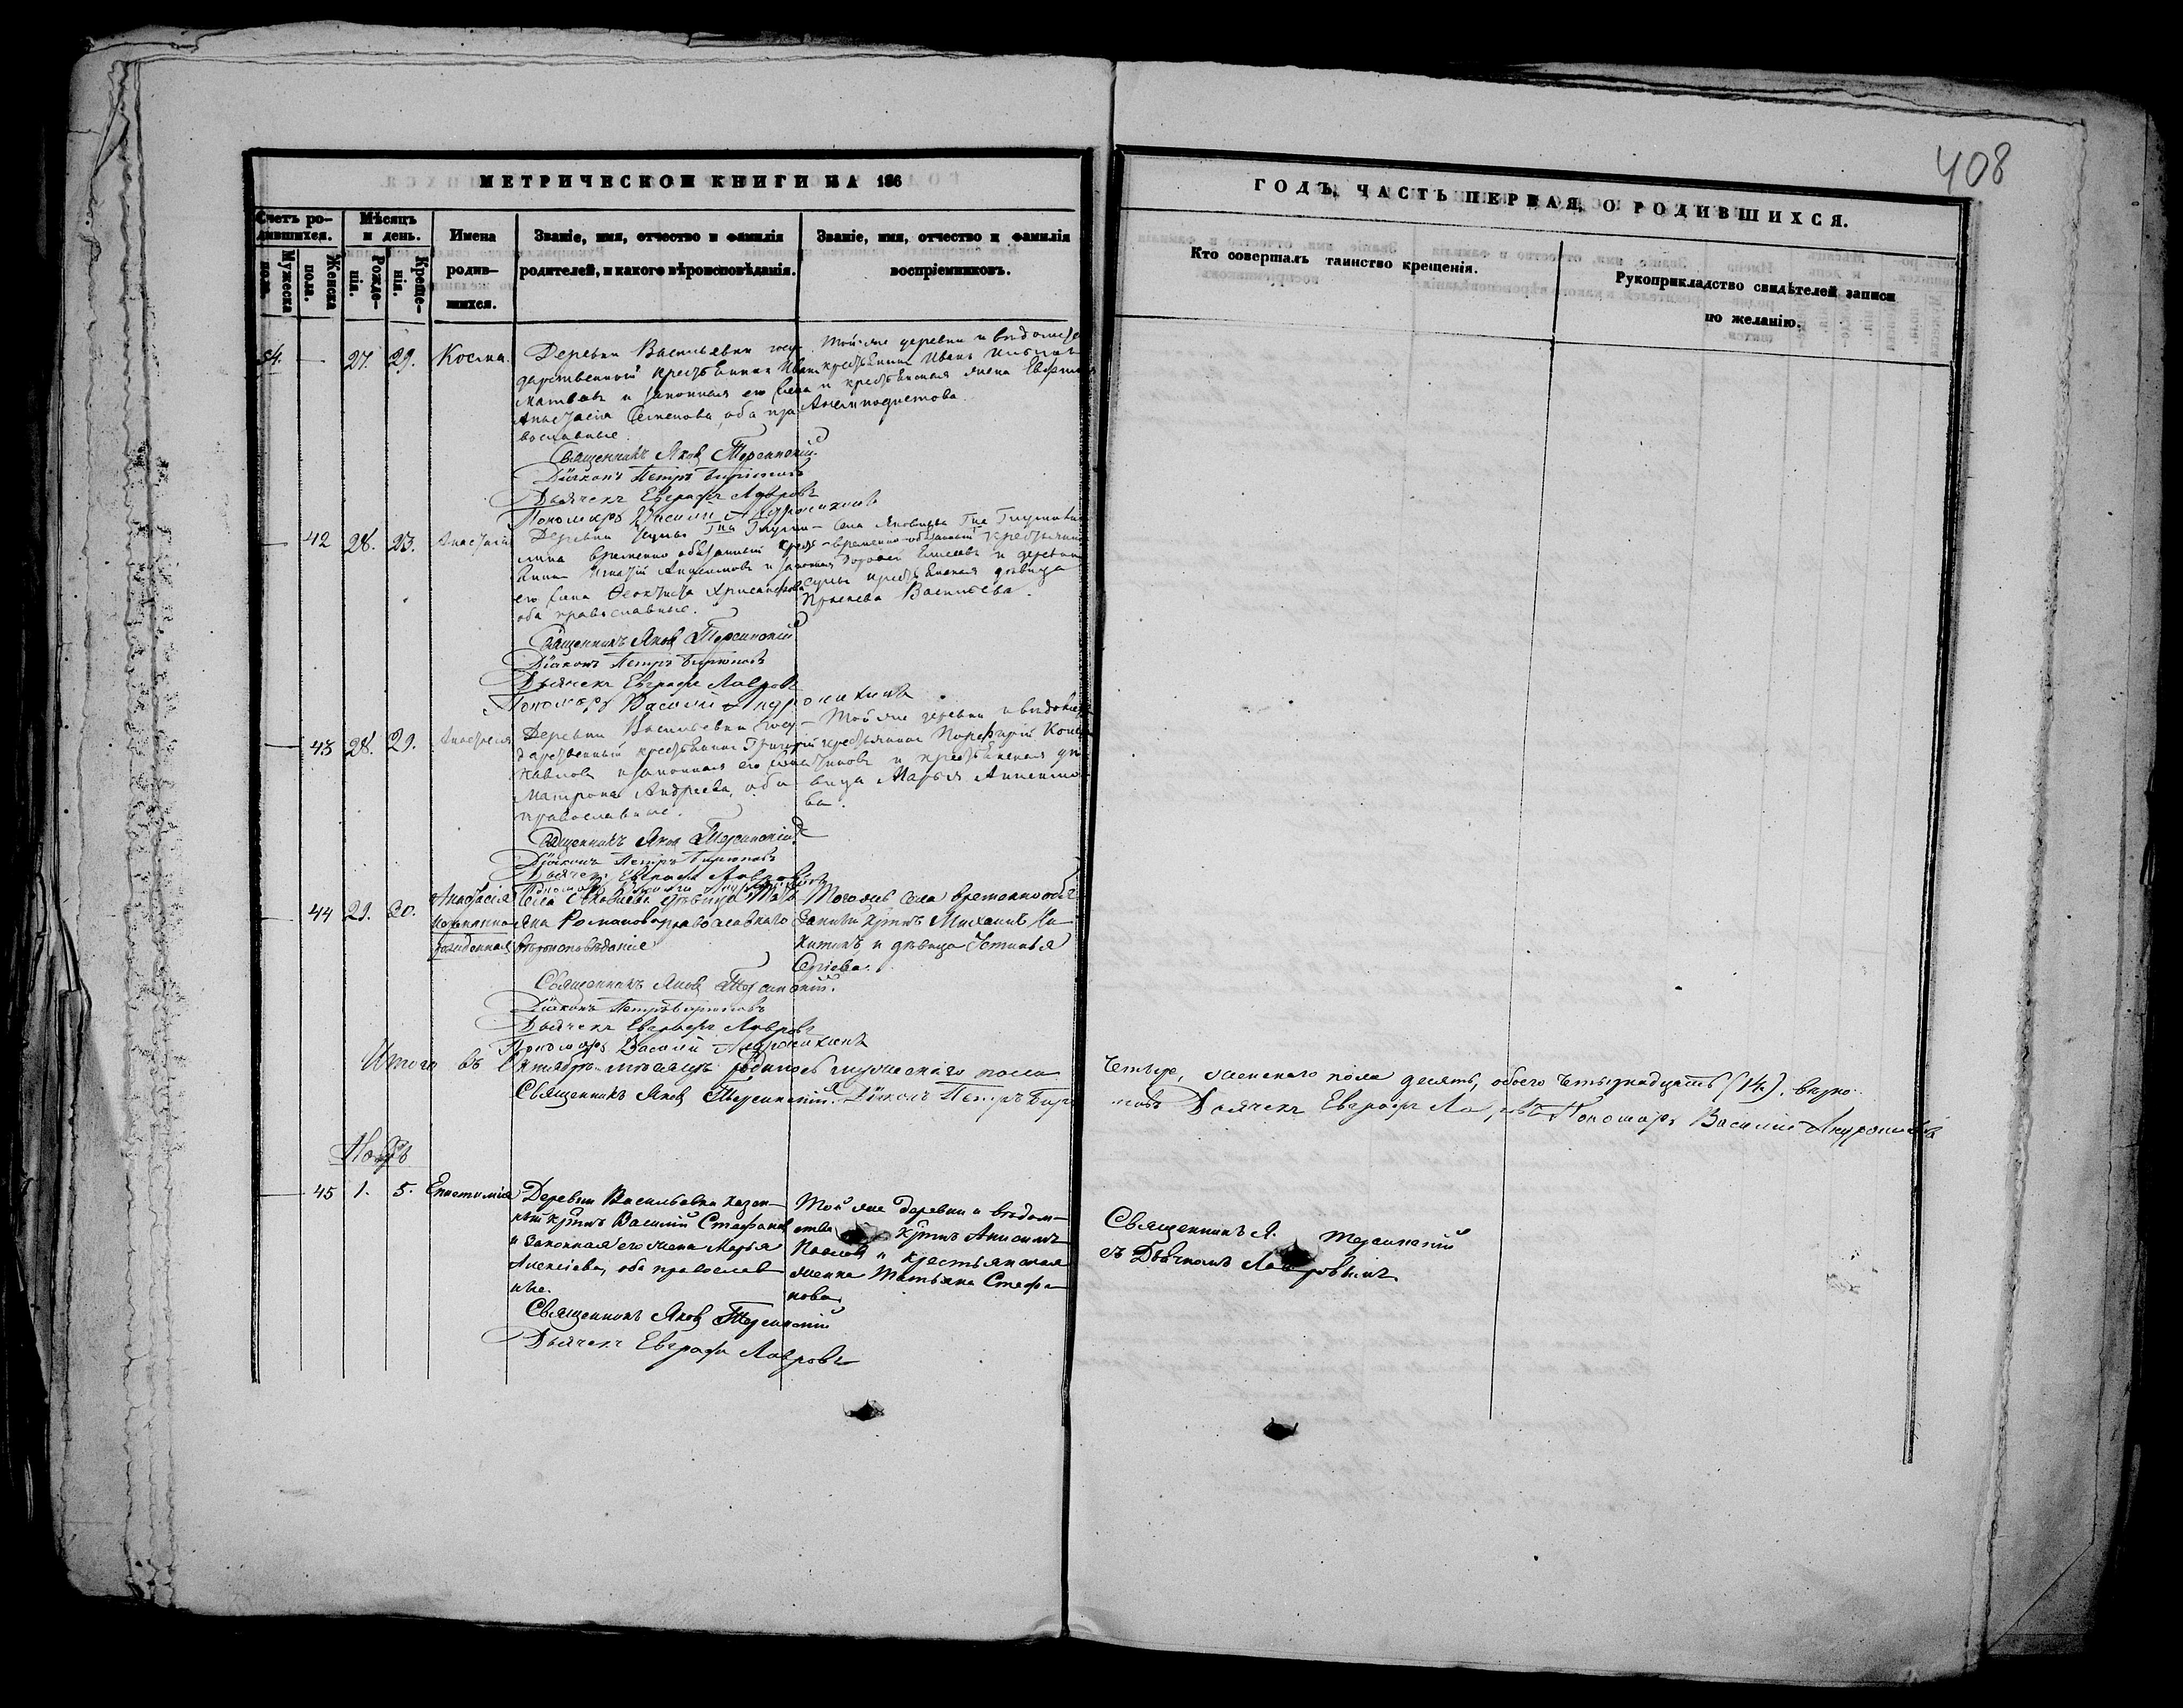 408
МЕТРИЧЕСКОЙ КНИГИ НА 186
ГОДЪ, ЧАСТЬ ПЕРВАЯ, О РОДИВШИХСЯ.
Счетъ ро-
дившихся.
Мужеска
пола.
Женска
пола.
Мѣсяцъ
и день.
Рожде-
нія.
Креще-
нія.
Имена
родив-
шихся.
Званіе, имя, отчество и фамилія
родителей, и какого вѣроисповѣданія.
Званіе, имя, отчество и фамилія
воспріемниковъ.
Кто совершалъ таинство крещенія.
Рукоприкладство свидѣтелей записи
по желанію.
54. — 27. 29. Косма.
Деревни Васильевки госу-
дарственный крестьянинъ Иванъ
Матвѣевъ и законная его жена
Анастасія Семенова, оба пра-
вославные.
Той же деревни и вѣдомства
крестьянинъ Иванъ
и крестьянская жена
Священникъ Яковъ Терсинскій.
Діаконъ Петръ Бирюковъ
Дьячекъ Евграфъ Лавровъ
Пономарь Василій Андрониковъ
— 42 28. 23. Анастасія
Деревни
временно обязанный крестья-
нинъ Игнатій и законная
его жена Феоктиста
оба православные.
Села Яковлева
временно-обязанный крестьянинъ
Дорофей Елисеевъ и деревни
крестьянская дѣвица
Васильева.
Священникъ Яковъ Терсинскій
Діаконъ Петръ Бирюковъ
Дьячекъ Евграфъ Лавровъ
Пономарь Василій Андрониковъ
— 43 28. 29. Анастасія
Деревни Васильевки госу-
дарственный крестьянинъ Григорій
Павловъ и законная его жена
Матрона Андреева, оба
православные.
Той же деревни и вѣдомства
крестьянинъ Порфирій
и крестьянская дѣ-
вица Марья
ва.
Священникъ Яковъ Терсинскій
Діаконъ Петръ Бирюковъ
Дьячекъ Евграфъ Лавровъ
Пономарь Василій Андрониковъ
— 44 29. 30. Анастасія
незаконно
рожденная
Села Яковлева дѣвица Тать-
яна Романова православнаго
вѣроисповѣданія
Того же села временнообя-
занный крѣнъ Михаилъ Ни-
китинъ и дѣвица Устинья
Сергіева.
Священникъ Яковъ Терсинскій.
Діаконъ Петръ Бирюковъ
Дьячекъ Евграфъ Лавровъ
Пономарь Василій Андрониковъ
Итого въ Октябрѣ мѣсяцѣ родилось мужескаго пола четыре, женскаго пола десять, обоего четырнадцать (14).
Священникъ Яковъ Терсинскій. Діаконъ Петръ Бирюковъ Дьячекъ Евграфъ Лавровъ Пономарь Василій Андрониковъ
Ноябрь
— 45 1. 5. Епистимія
Деревни Васильевки казен-
ный крѣнъ Василій Стефановъ
и законная его жена Марья
Алексіева, оба православ-
ные.
Той же деревни и вѣдом-
ства крѣнъ Анисимъ
Павловъ и крестьянская
женка Татьяна Стефа-
нова
Священникъ Я. Терсинскій
съ Дьячкомъ Лавровымъ.
Священникъ Яковъ Терсинскій
Дьячекъ Евграфъ Лавровъ